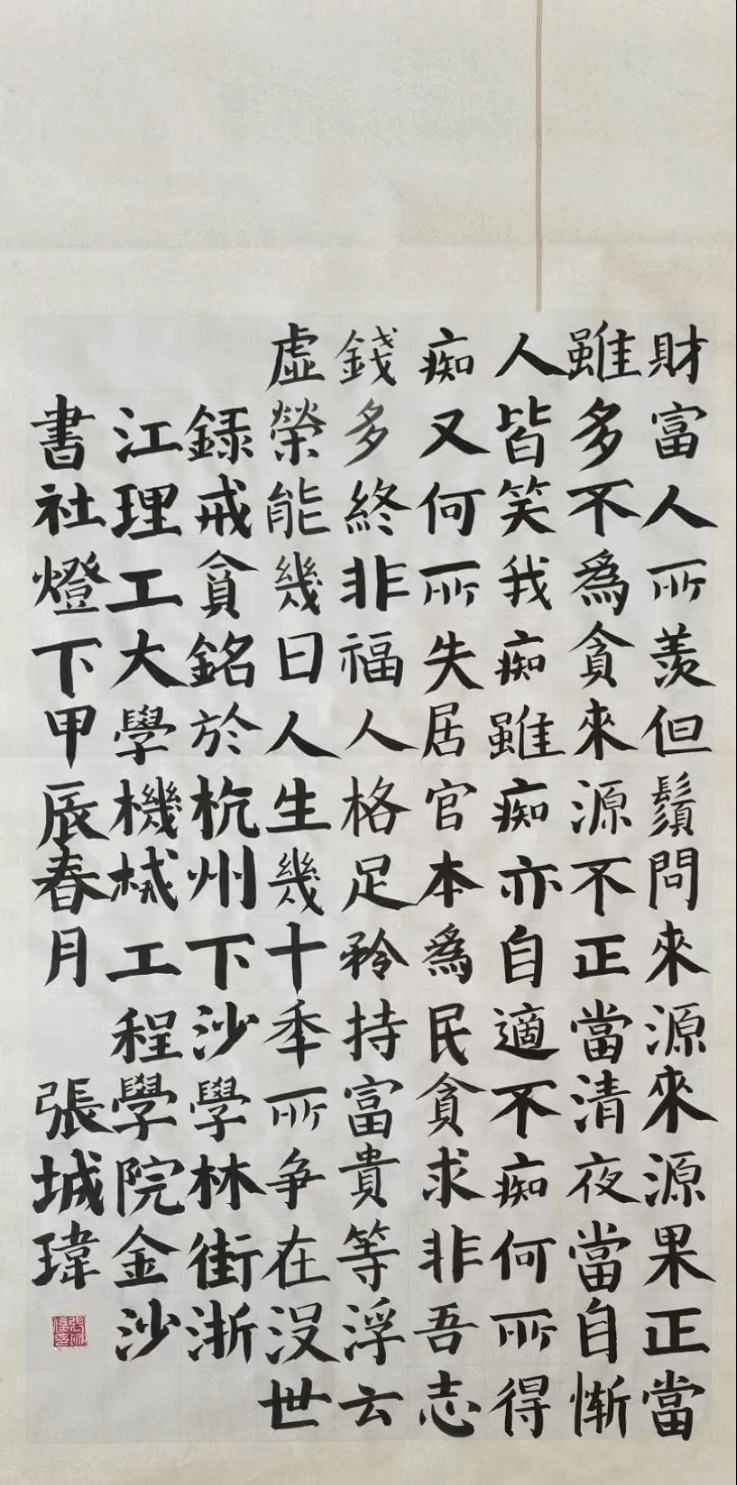 財富人所羨但鬚問來源來源果正當
雖多不為貪來源不正當清夜當自慚
人皆笑我痴雖痴亦自適不痴何所得
痴又何所失居官本為民貪求非吾志
錢多終非福人格足矜持富貴等浮云
虛榮能幾日人生幾十秊所争在没世
録戒貪銘於杭州下沙學林街浙
江理工大學機械工程學院金沙
書社燈下甲辰春月 張城瑋